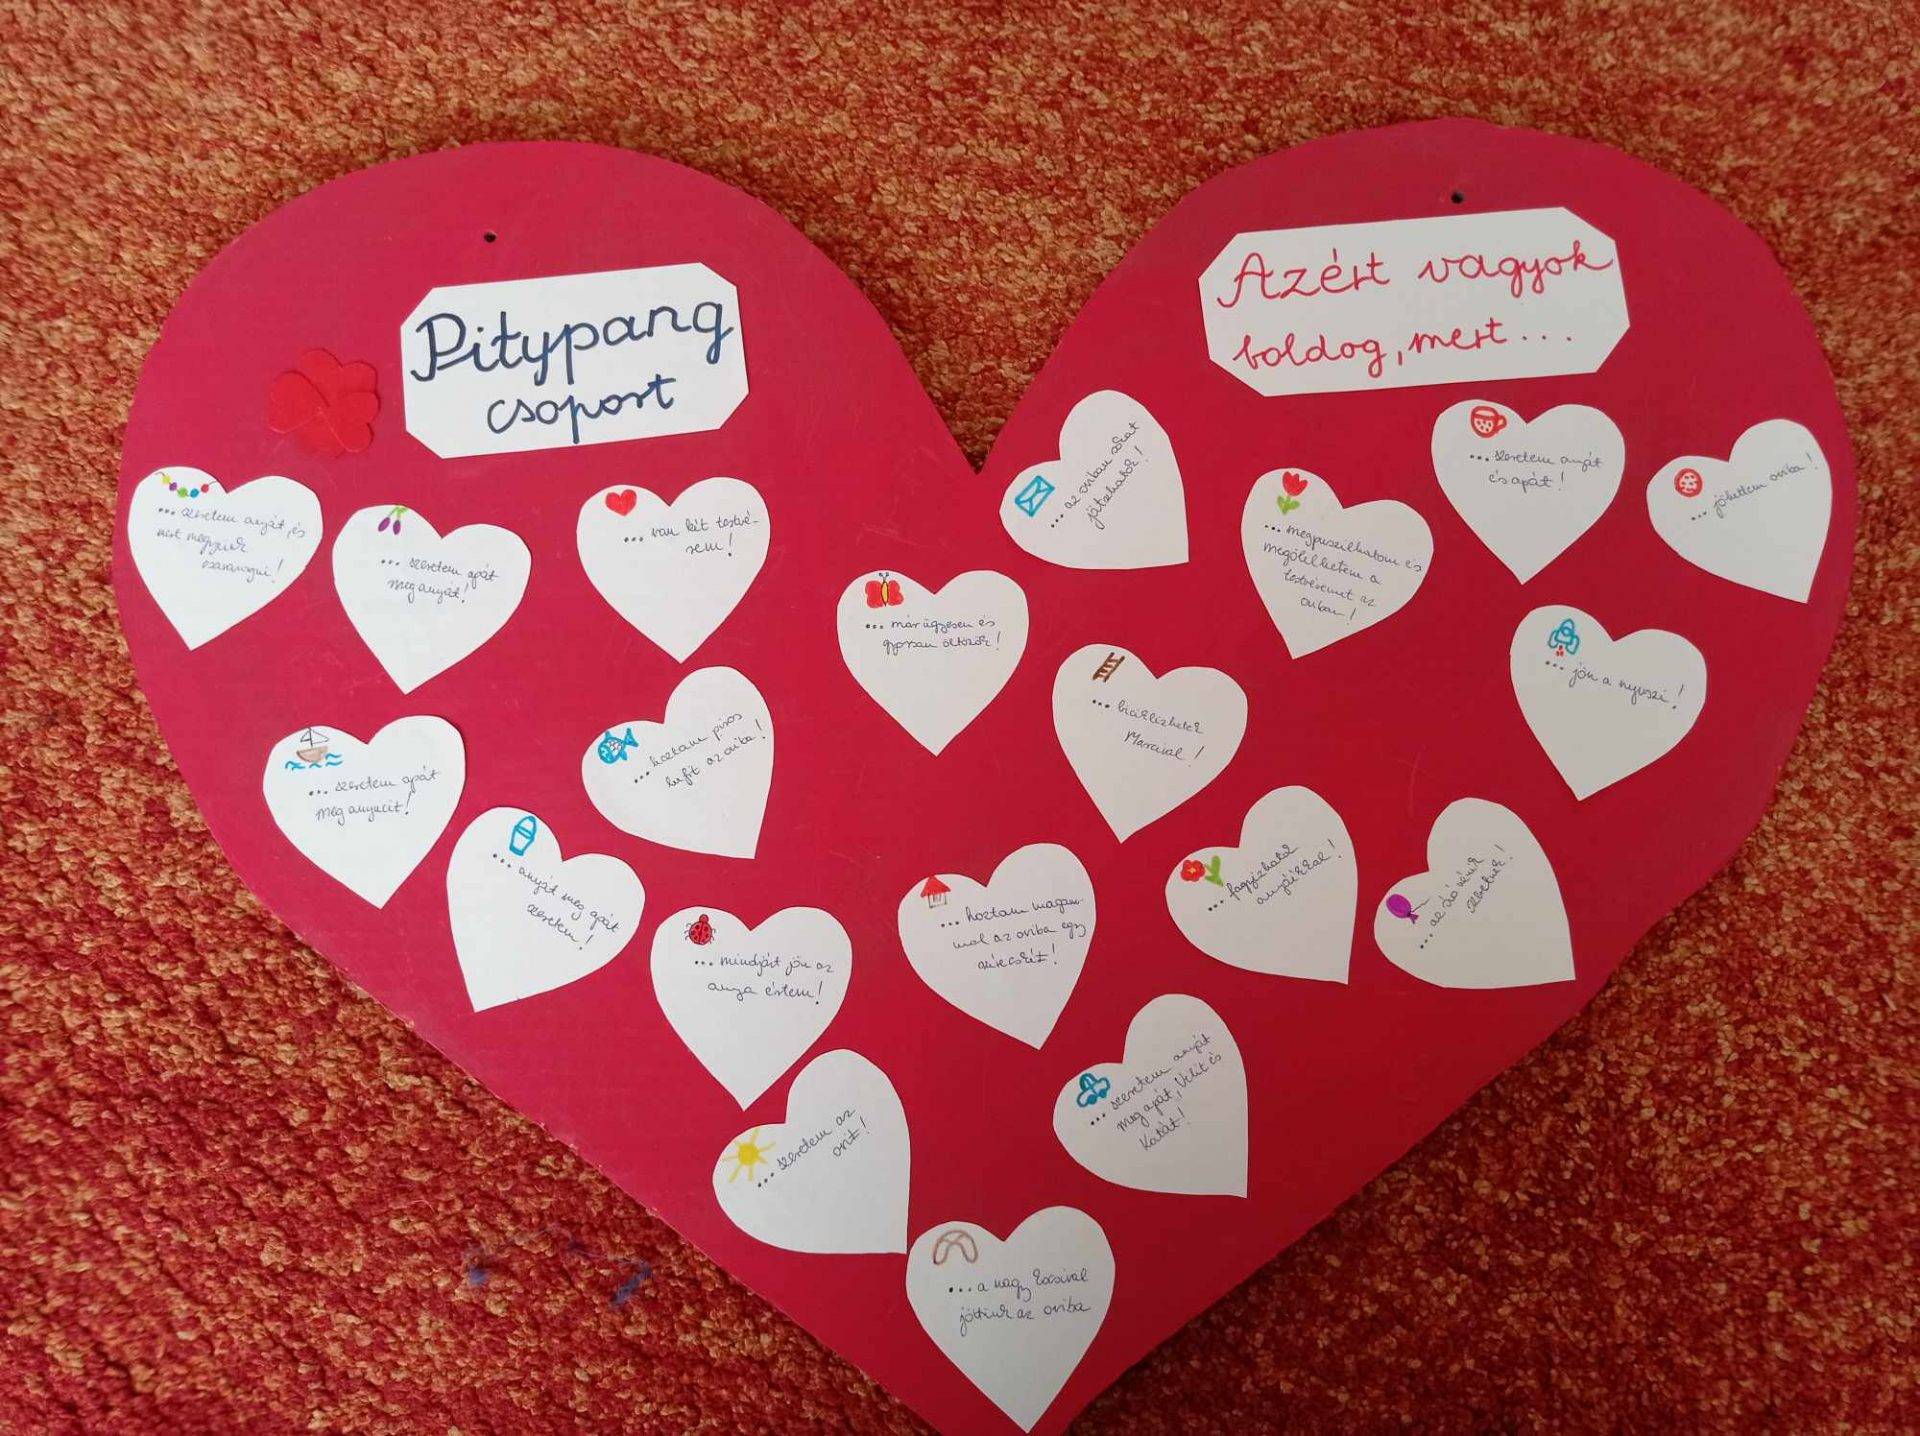 Pitypang
csoport
Azért vagyok
boldog, mert...
... szeretem anyát, és
mert megyünk
csavarogni!
... szeretem apát
meg anyát!
... van két testvé-
rem!
... az oviban sokat
játszhatok!
... megpuszilhatom és
megölelhetem a
testvéremet az
oviban!
... szeretem anyát
és apát!
... jöhettem oviba!
... már ügyesen és
gyorsan öltözök!
... biciklizhetek
Marcival!
... jön a nyuszi!
... szeretem apát
meg anyucit!
... hoztam piros
lufit az oviba!
... anyát meg apát
szeretem!
... mindjárt jön az
anya értem!
... hoztam magam-
mal az oviba egy
!
... fagyizhatok
anyáékkal!
... az óvó nénik
szeretnek!
... szeretem az
ovit!
... szeretem anyát
meg apát, Velit és
Katát!
... a nagy kocsival
jöttünk az oviba